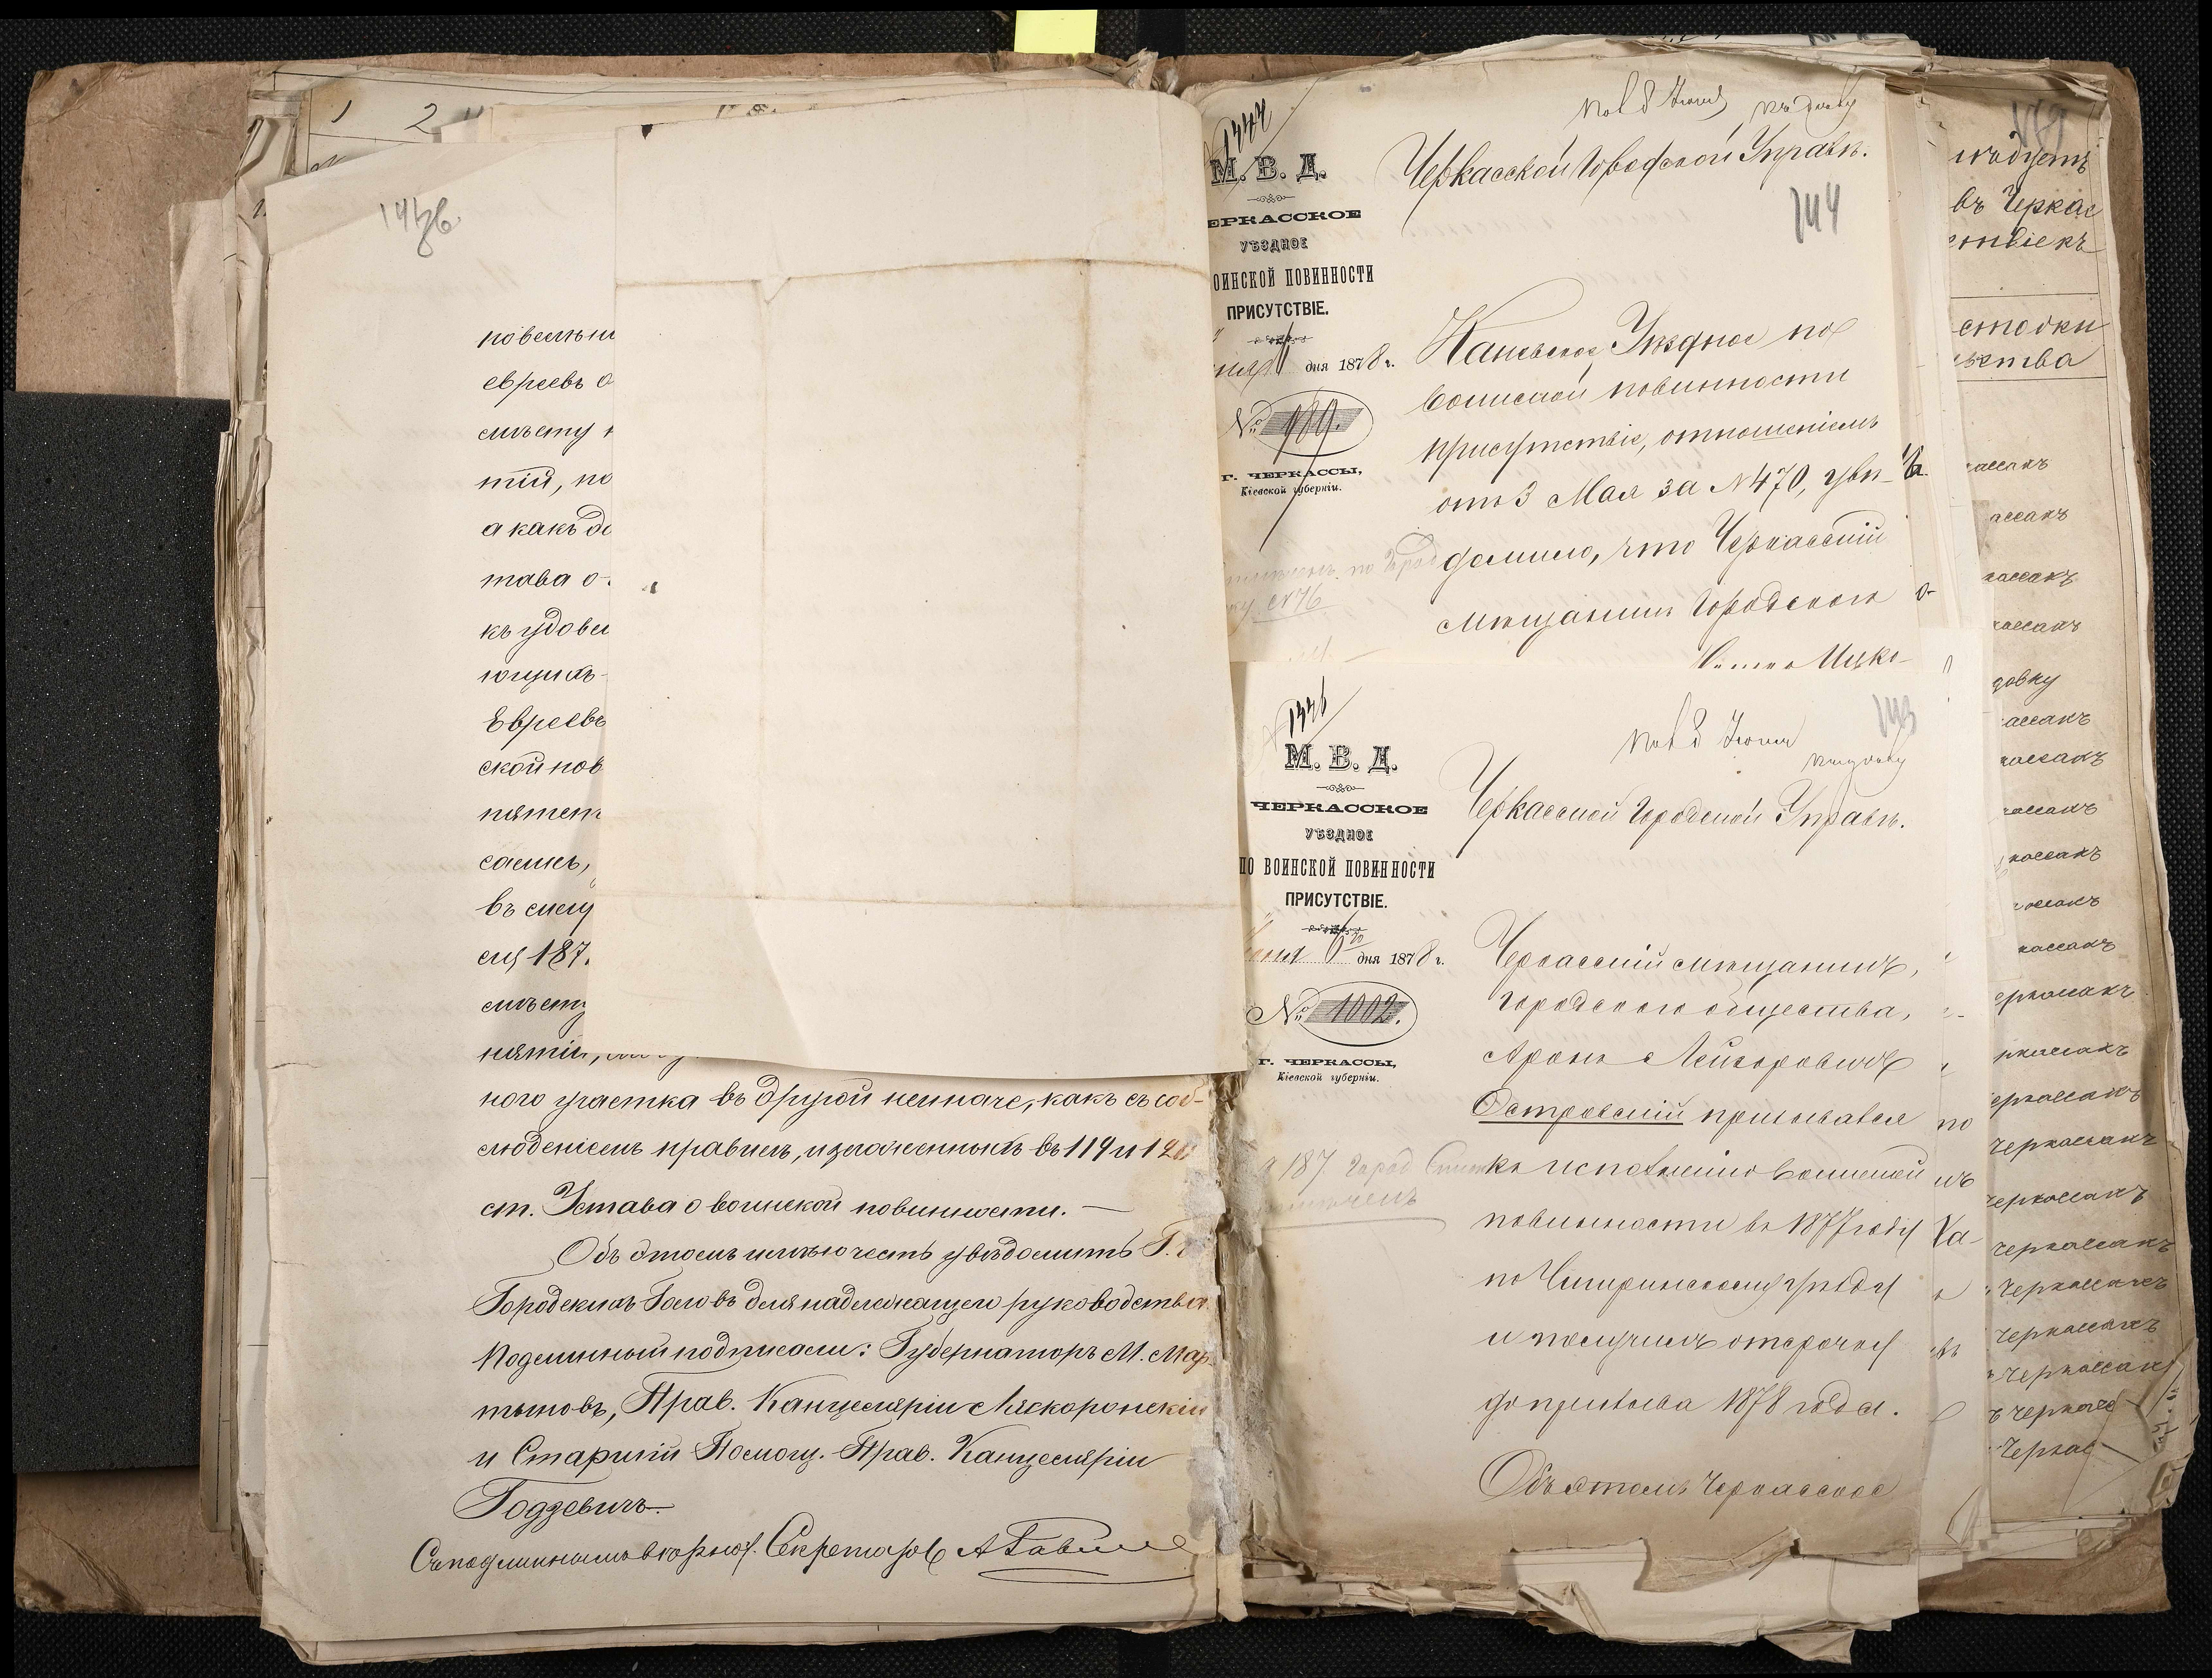 1 2
повелѣні
евреевъ о
смѣту
тій, по
а какъ до
тава о
къ удовл
ющихъ
Евреевъ
ской пов
пятст
сались,
въ слу
ся 187
смѣсту
нятій,
ного участка въ другой неиначе, какъ съ соб-
люденіемъ правилъ, изложенныхъ въ 119 и 120
ст. Устава о воинской повинности. —
Объ этомъ имѣю честь увѣдомить Г.г.
Городскихъ Головъ для надлежащаго руководства
Подлинный подписали: Губернаторъ М. Мар
тыновъ, Прав. Канцеляріи Ляскоронскій
и Старшій Помощ. Прав. Канцеляріи
Годзевичъ
Съ подлиннымъ вѣрно: Секретарь
1444
М. В. Д.
ЕРКАССКОЕ
УѢЗДНОЕ
ОИНСКОЙ ПОВИННОСТИ
ПРИСУТСТВІЕ.
дня 1878 г.
№ 989.
г. ЧЕРКАССЫ,
Кіевской губерніи.
Пол 8 Іюня
Черкасской Городской Управѣ.
144
Каневское Уѣздное по
воинской повинности
присутствіе, отношеніемъ
отъ 3 Мая за №470, увѣ-
домило, что Черкасскій
мѣщанинъ Городского о-
Ицко-
1446
М. В. Д.
ЧЕРКАССКОЕ
УѢЗДНОЕ
ПО ВОИНСКОЙ ПОВИННОСТИ
ПРИСУТСТВІЕ.
Іюня 6 дня 1878 г.
№ 1002.
г. ЧЕРКАССЫ,
Кіевской губерніи.
Пол 8 Іюня
143
Черкасской Городской Управѣ.
Черкасскій мѣщанинъ,
городского общества,
Аронъ Лейзоровичъ
Островскій призывался
къ исполненію воинской
повинности въ 1877 году
по Чигиринскому уѣзду
и получилъ отсрочку
до призыва 1878 года.
Объ этомъ Черкасское
въ Черкас
ствіе къ
стовки
ьства
ассакъ
ассакъ
кассакъ
кассакъ
довку
ассакъ
кассакъ
кассакъ
кассакъ
кассакъ
кассакъ
еркассакъ
ркассакъ
еркассакъ
Черкассакъ
Черкассакъ
Черкассакъ
Черкассакъ
Черкассакъ
Черкассакъ
ъ Черкасс
Черкас